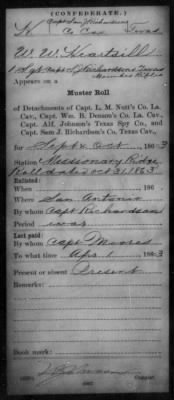 (CONFEDERATE.)
Capt Sam J Richardson's
H Co Cav Texas
W. W. Heartsill
1 Sgt Capt S J Richardson's Texas
Mounted Rifles
Appears on a
Muster Roll
of Detachments of Capt. L. M. Nutt's Co. La.
Cav., Capt. Wm. B. Denson's Co. La. Cav.,
Capt. Alf. Johnson's Texas Spy Co., and
Capt. Sam J. Richardson's Co. Texas Cav.,
for Sept & Oct, 1863
Station Missionary Ridge
Roll dated Oct 31, 1863
Enlisted:
When , 186
Where San Antonio
By whom Capt Richardson
Period war
Last paid:
By whom Capt Moores
To what time Apr 1, 1863
Present or absent Present
Remarks:
Book mark:
Copyist.